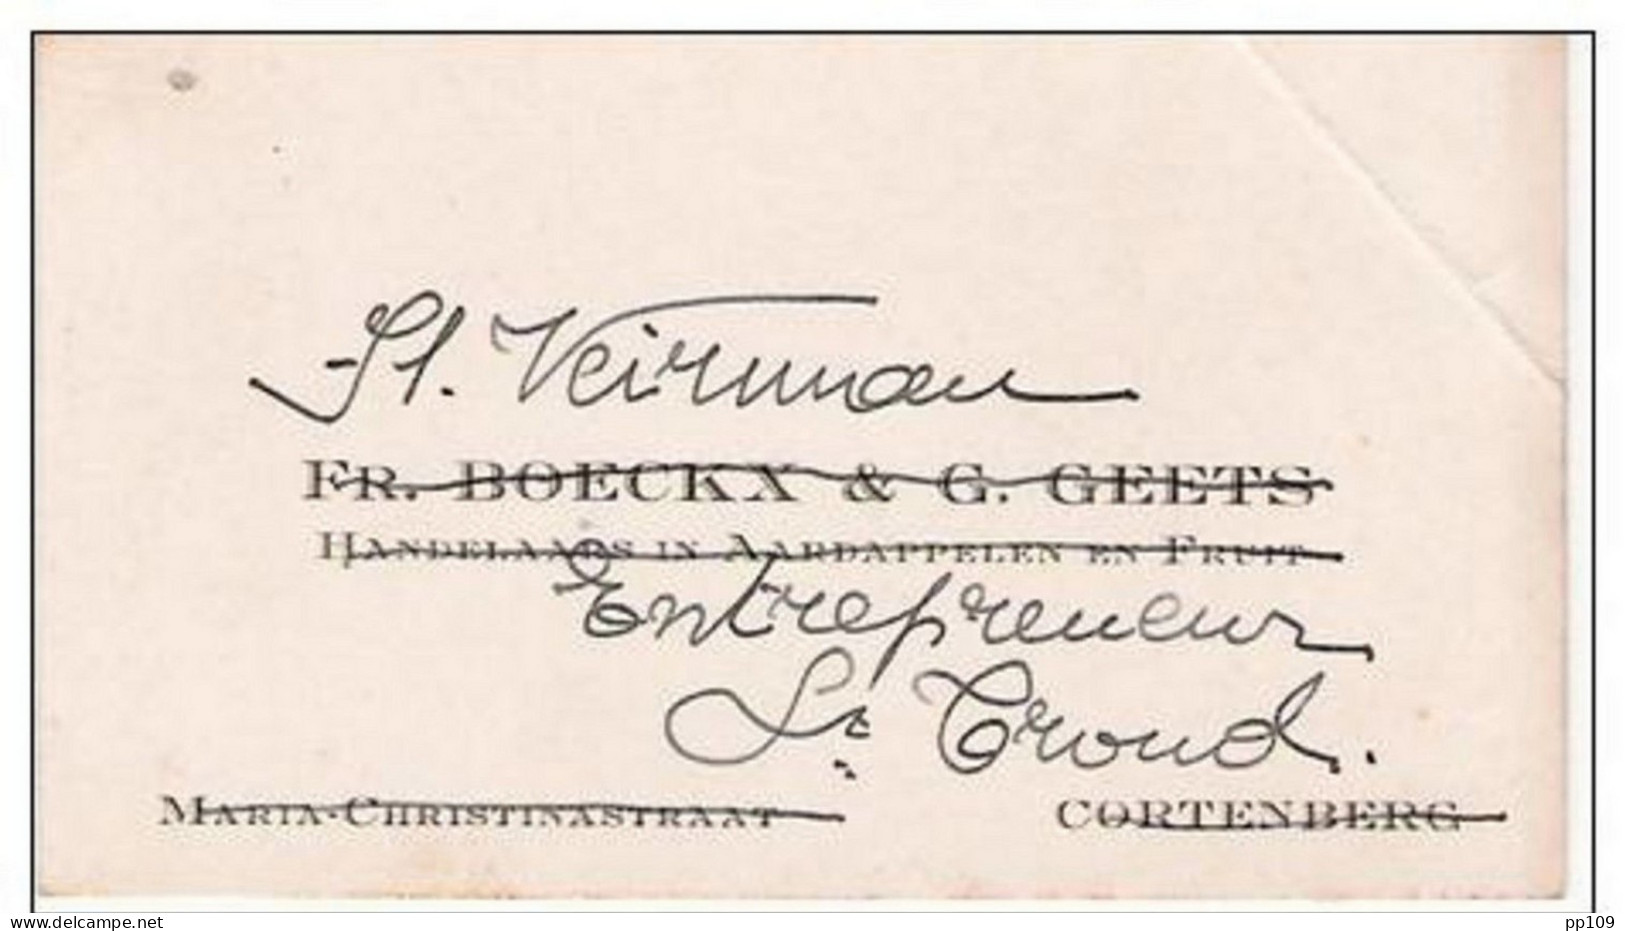 St. Veirman
FR. BOECKX & G. GEETS
HANDELAARS IN AARDAPPELEN EN FRUIT
Entrepreneur
St Trond.
MARIA-CHRISTINASTRAAT CORTENBERG
www.delcampe.net pp109